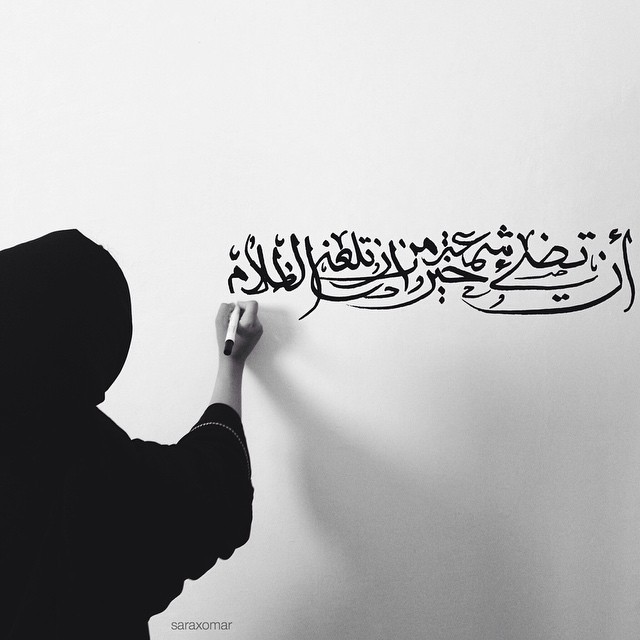 أن تضيء شمعة خير من أن تلعن الظلام
saraxomar